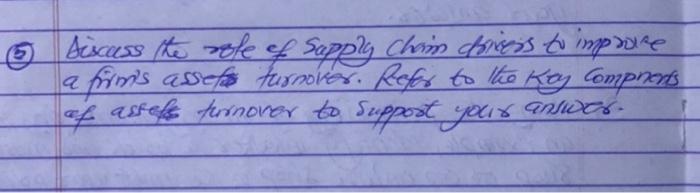 ⑤ Discuss the role of Supply Chain drivers to improve
a firm's assets turnover. Refer to the Key Components
of assets turnover to support your answer.